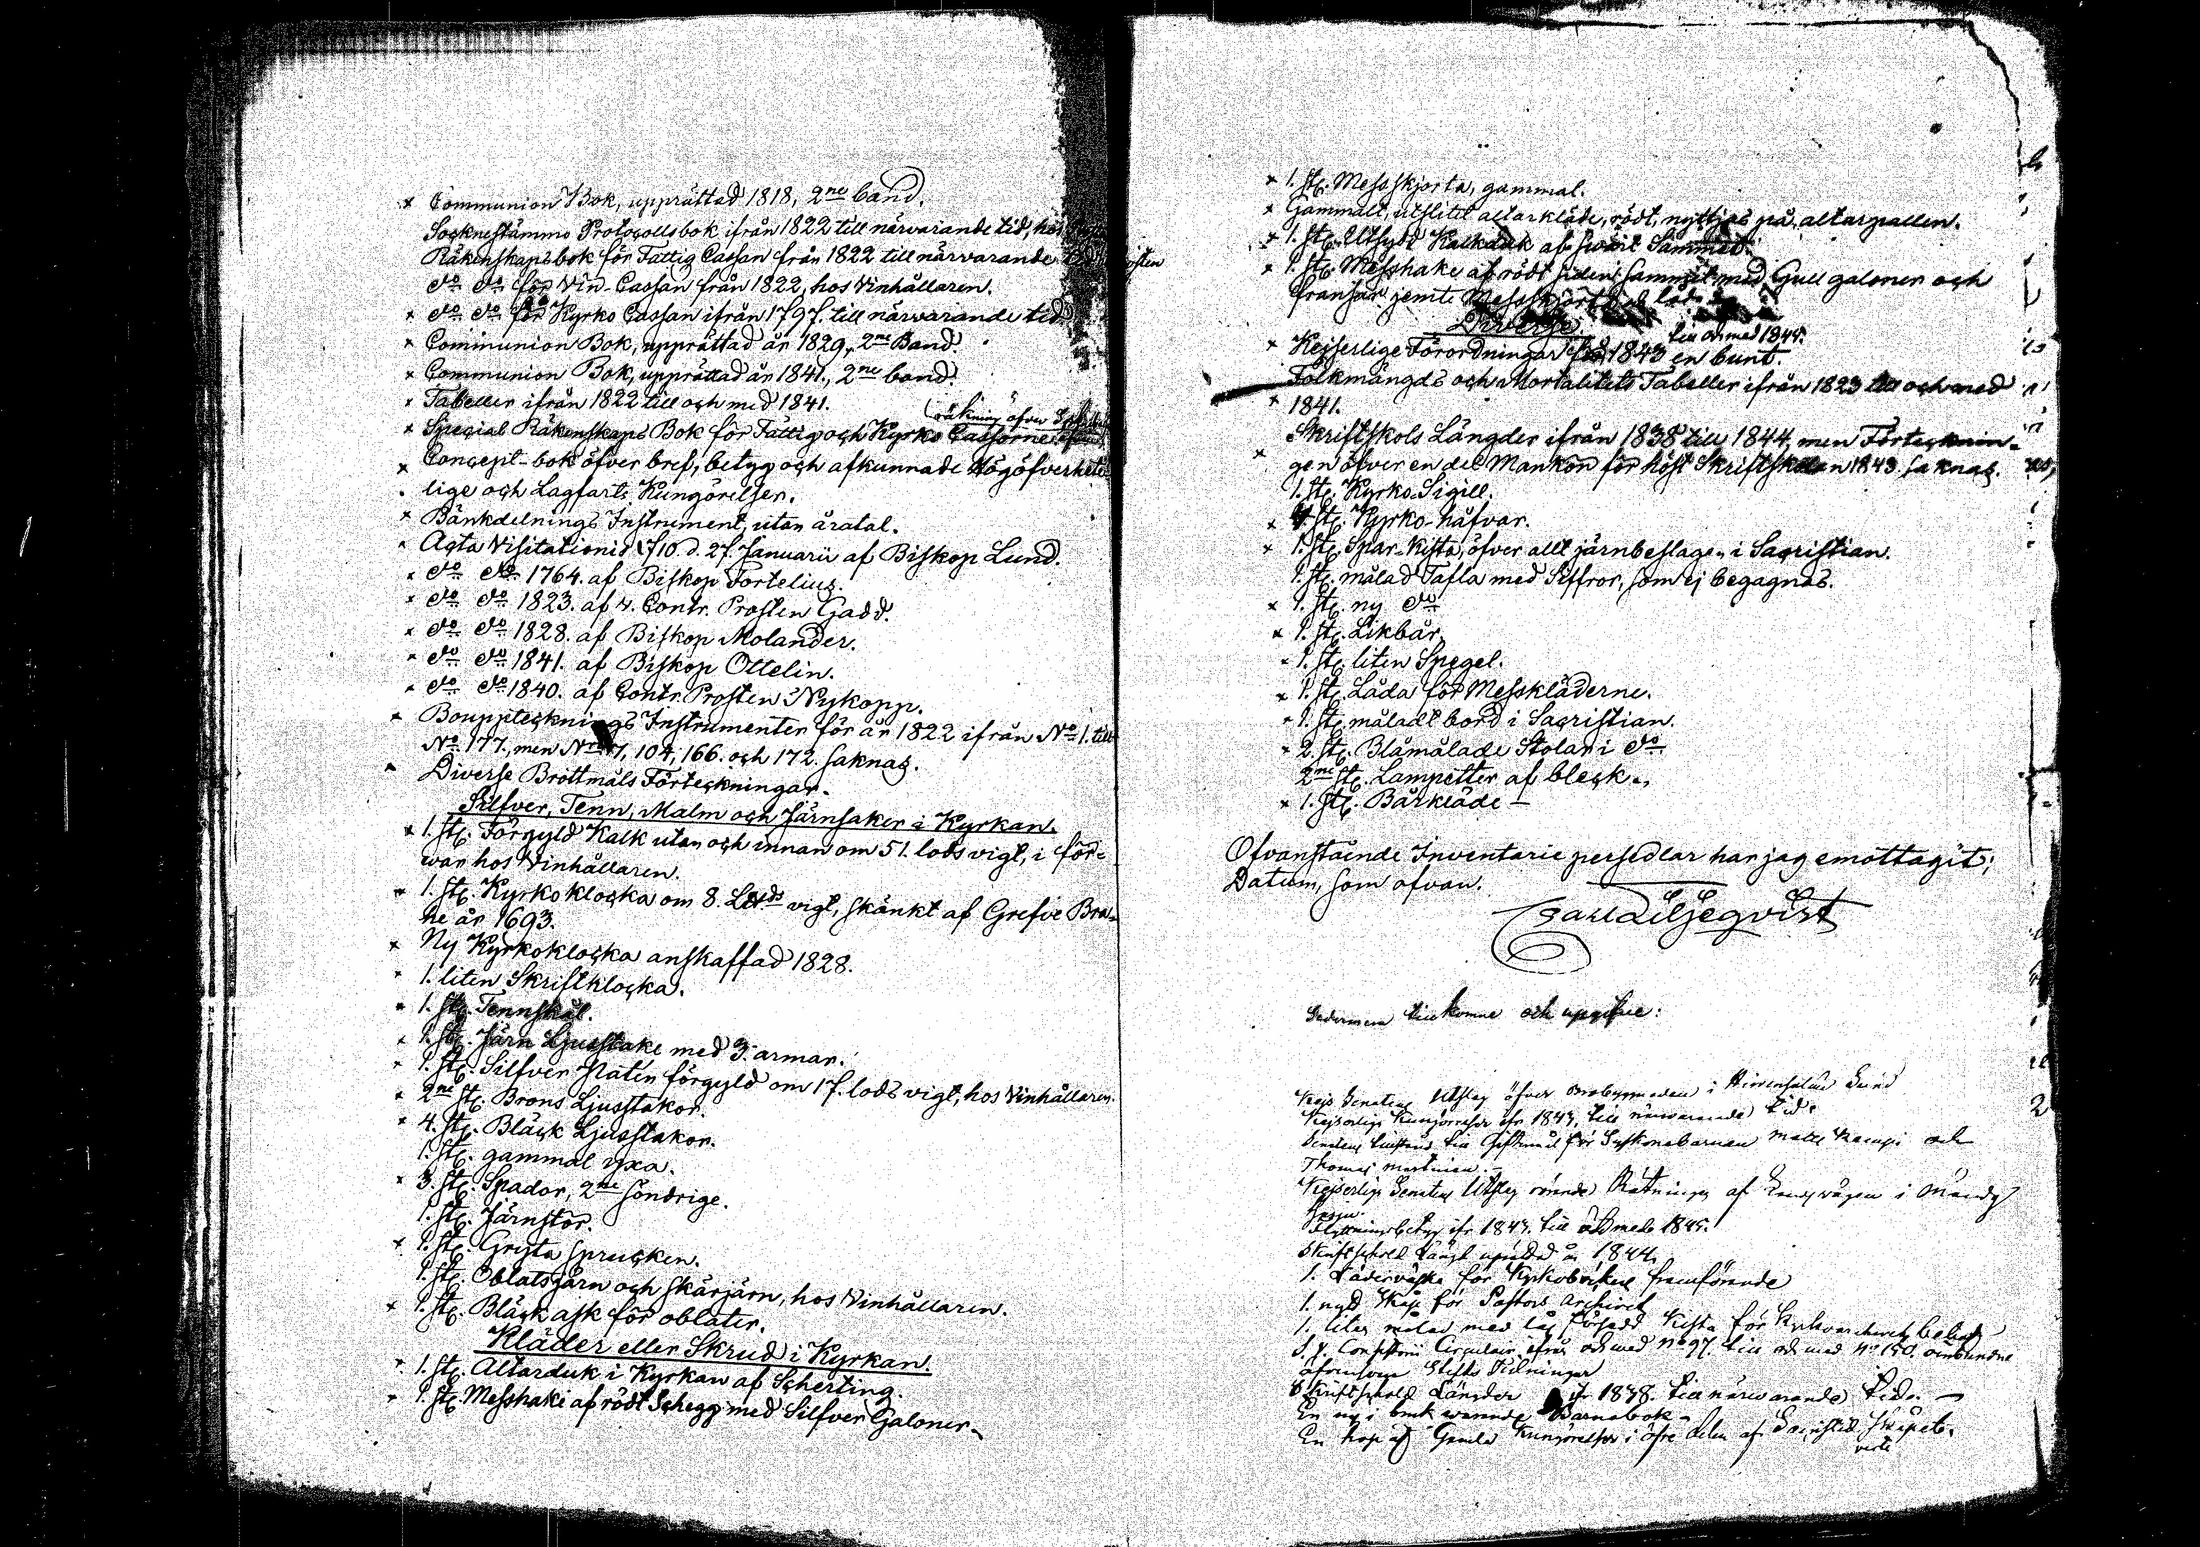 × Communion Bok, upprättad 1818, 2ne band.
Socknestämmo Protocollsbok ifrån 1822 till närvarande tid, hos
Räkenskapsbok för Fattig Cassan från 1822 till närvarande tid
do do för Vin-Cassan från 1822, hos Vinhållaren.
× do do för Kyrko Cassan ifrån 1797. till närvarande tid.
× Communion Bok, upprättad år 1829, 2ne Band.
× Communion Bok, upprättad år 1841., 2ne band.
× Tabeller ifrån 1822 till och med 1841.
(räkning öfver
× Special Räkenskaps Bok för Fattig och Kyrko Cassorne
× Concept-bok öfver bref, betyg och afkunnade Högöfverhets
lige och Lagfarts Kungörelser.
× Bänkdelnings Instrument, utan åratal.
× Acta Visitationis 1710. d. 27. Januarii af Biskop Lund.
× do do 1764. af Biskop Fortelius.
× do do 1823. af v. Contr. Prosten Gadd.
× do do 1828. af Biskop Molander.
× do do 1841. af Biskop Ottelin.
× do do 1840. af Contr. Prosten Nykopp.
× Boupptecknings Instrumenter för år 1822 ifrån No 1. till
No 177., men 104, 166. och 172. saknas.
× Diverse Brottmåls Förteckningar.
Silfver, Tenn, Malm och Järnsaker i Kyrkan.
× 1. st. Förgyld Kalk utan och innan om 51. lods vigt, i för=
war hos Vinhållaren.
× 1. st. Kyrkoklocka om 8. vigt, skänkt af Grefve Bra=
he år 1693.
× Ny Kyrkoklocka anskaffad 1828.
× 1. liten Skriftklocka.
× 1. st. Tennskål.
× 1. st. Järn Ljusstake med 3. armar.
× 1. st. Silfver Patén förgyld om 17. lods vigt, hos Vinhållaren.
× 2ne st. Brons Ljusstakor.
× 4. st. Bläck Ljusstakor.
1. st. gammal yxa.
× 3. st. Spador, 2ne söndrige.
1. st. Järnstör.
× 1. st. Gryta sprucken.
1. st. Oblatsjärn och skärjärn, hos Vinhållaren.
× 1. st. Bläck ask för oblater.
Kläder eller Skrud i Kyrkan.
× 1. st. Altarduk i Kyrkan af Scherting.
× 1. st. Messhake af rödt Schegg med Silfver Galoner.
× 1. st. Messskjorta, gammal.
× Gammalt, utslitit altarkläde, rödt, nyttjas på altarpallen.
× 1. st. Utsydt Kalkduk af svart Sammet.
× 1. st. Messhake af rödt siden sammet med Gull galoner och
fransar jemte Messskjort
Diverse.
till och med 1845.
× Kejserlige Förordningar 1843 en bunt
Folkmängds och Mortalitets Tabeller ifrån 1823 till och med
× 1841.
Skriftskols Längder ifrån 1838 till 1844, men Förtecknin=
× gen öfver en del Mankön för höst Skriftskolan 1843. saknas.
1. st. Kyrko Sigill.
× 4. st. Kyrko-håfvar.
× 1. st. Spar-Kista, öfver allt järnbeslagen i Sacristian.
1. st. målad Tafla med Siffror, som ej begagnas.
× 1. st. ny do
× 1. st. Likbår.
× 1. st. liten Spegel.
× 1. st. Låda för Messkläderne.
× 1. st. måladt bord i Sacristian.
× 2. st. Blåmålade Stolar i do.
2ne st. Lampetter af bleck.
× 1. st. Bårkläde —
Ofvanstående Inventarie persedlar har jag emottagit;
Datum, som ofvan.
Carl Liljeqvist
Sedermera tillkomne och
Kejs Senatens Utslag öfver i Sund
Kejserlige Kungörelser ifr 1843, till närvarande tid.
Senatens till Giftermål för Syskonebarnen Matts och
Thomas
Kejserlige Senatens Utslag rörande af i
Flyttningsbetyg ifr 1843. till och med 1845.
Skriftskole Längd år 1844.
1. Läderväska för Kyrkoböckers framförande
1. nytt Skåp för Pastors Archivet
1. liten målad med lås försedd Kista för
Circulair ifrån och med No 97. till och med No 150. oinbundne
Stifts Tidningar
Skriftskole Längder ifr 1838. till närwarande tid. —
En ny i bruk warande Barnabok.
En hop af Gamla Kungörelser i öfre delen af skåpet.